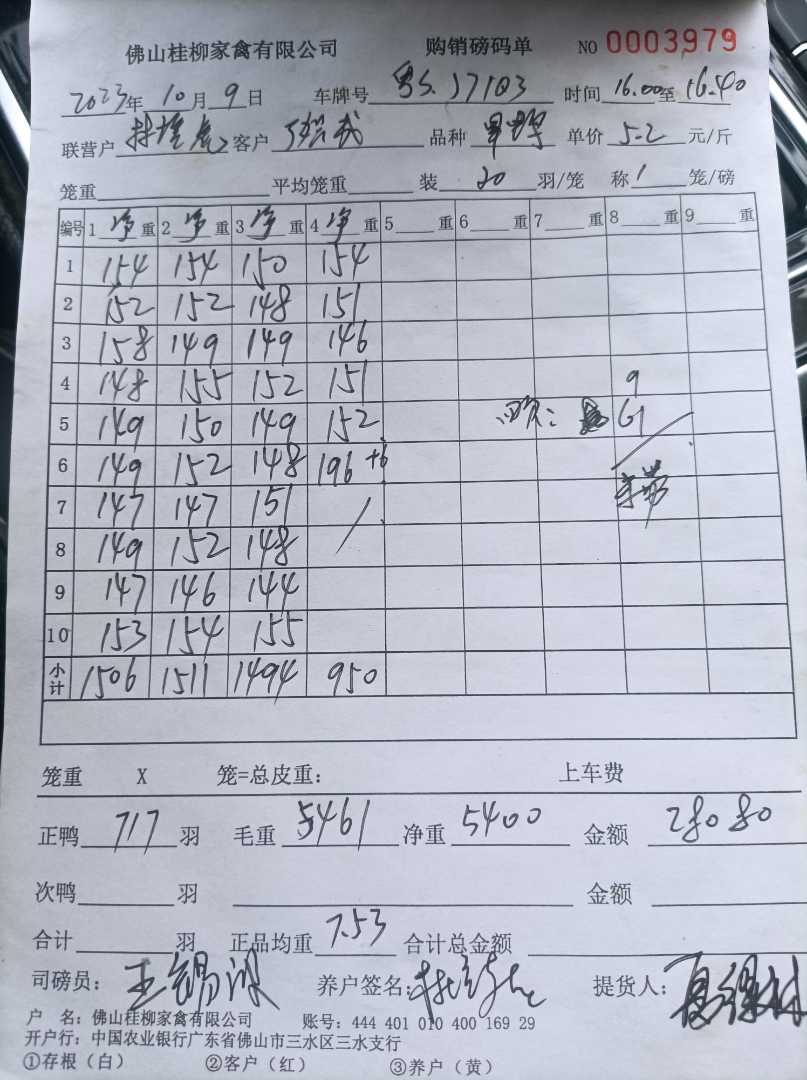 佛山桂柳家禽有限公司 购销磅码单 NO 0003979
2023年 10月 9日 车牌号 粤S.J71Q3 时间 16.00至 16.40
联营户 客户 品种 单价 5.2 元/斤
笼重 平均笼重 装 20 羽/笼 称 1 笼/磅
编号 1 净 重 2 净 重 3 净 重 4 净 重 5 重 6 重 7 重 8 重 9 重
1 154 154 150 154
2 152 152 148 151
3 158 149 149 146
4 148 155 152 151 9
5 149 150 149 152 : 61
6 149 152 148 196 +6
7 147 147 151 /
8 149 152 148
9 147 146 144
10 153 154 155
小计 1506 1511 1494 950
笼重 X 笼=总皮重: 上车费
正鸭 717 羽 毛重 5461 净重 5400 金额 28080
次鸭 羽 金额
合计 羽 正品均重 7.53 合计总金额
司磅员: 王锡 养户签名: 提货人:
户 名: 佛山桂柳家禽有限公司 账号: 444 401 010 400 169 29
开户行: 中国农业银行广东省佛山市三水区三水支行
①存根(白) ②客户(红) ③养户(黄)